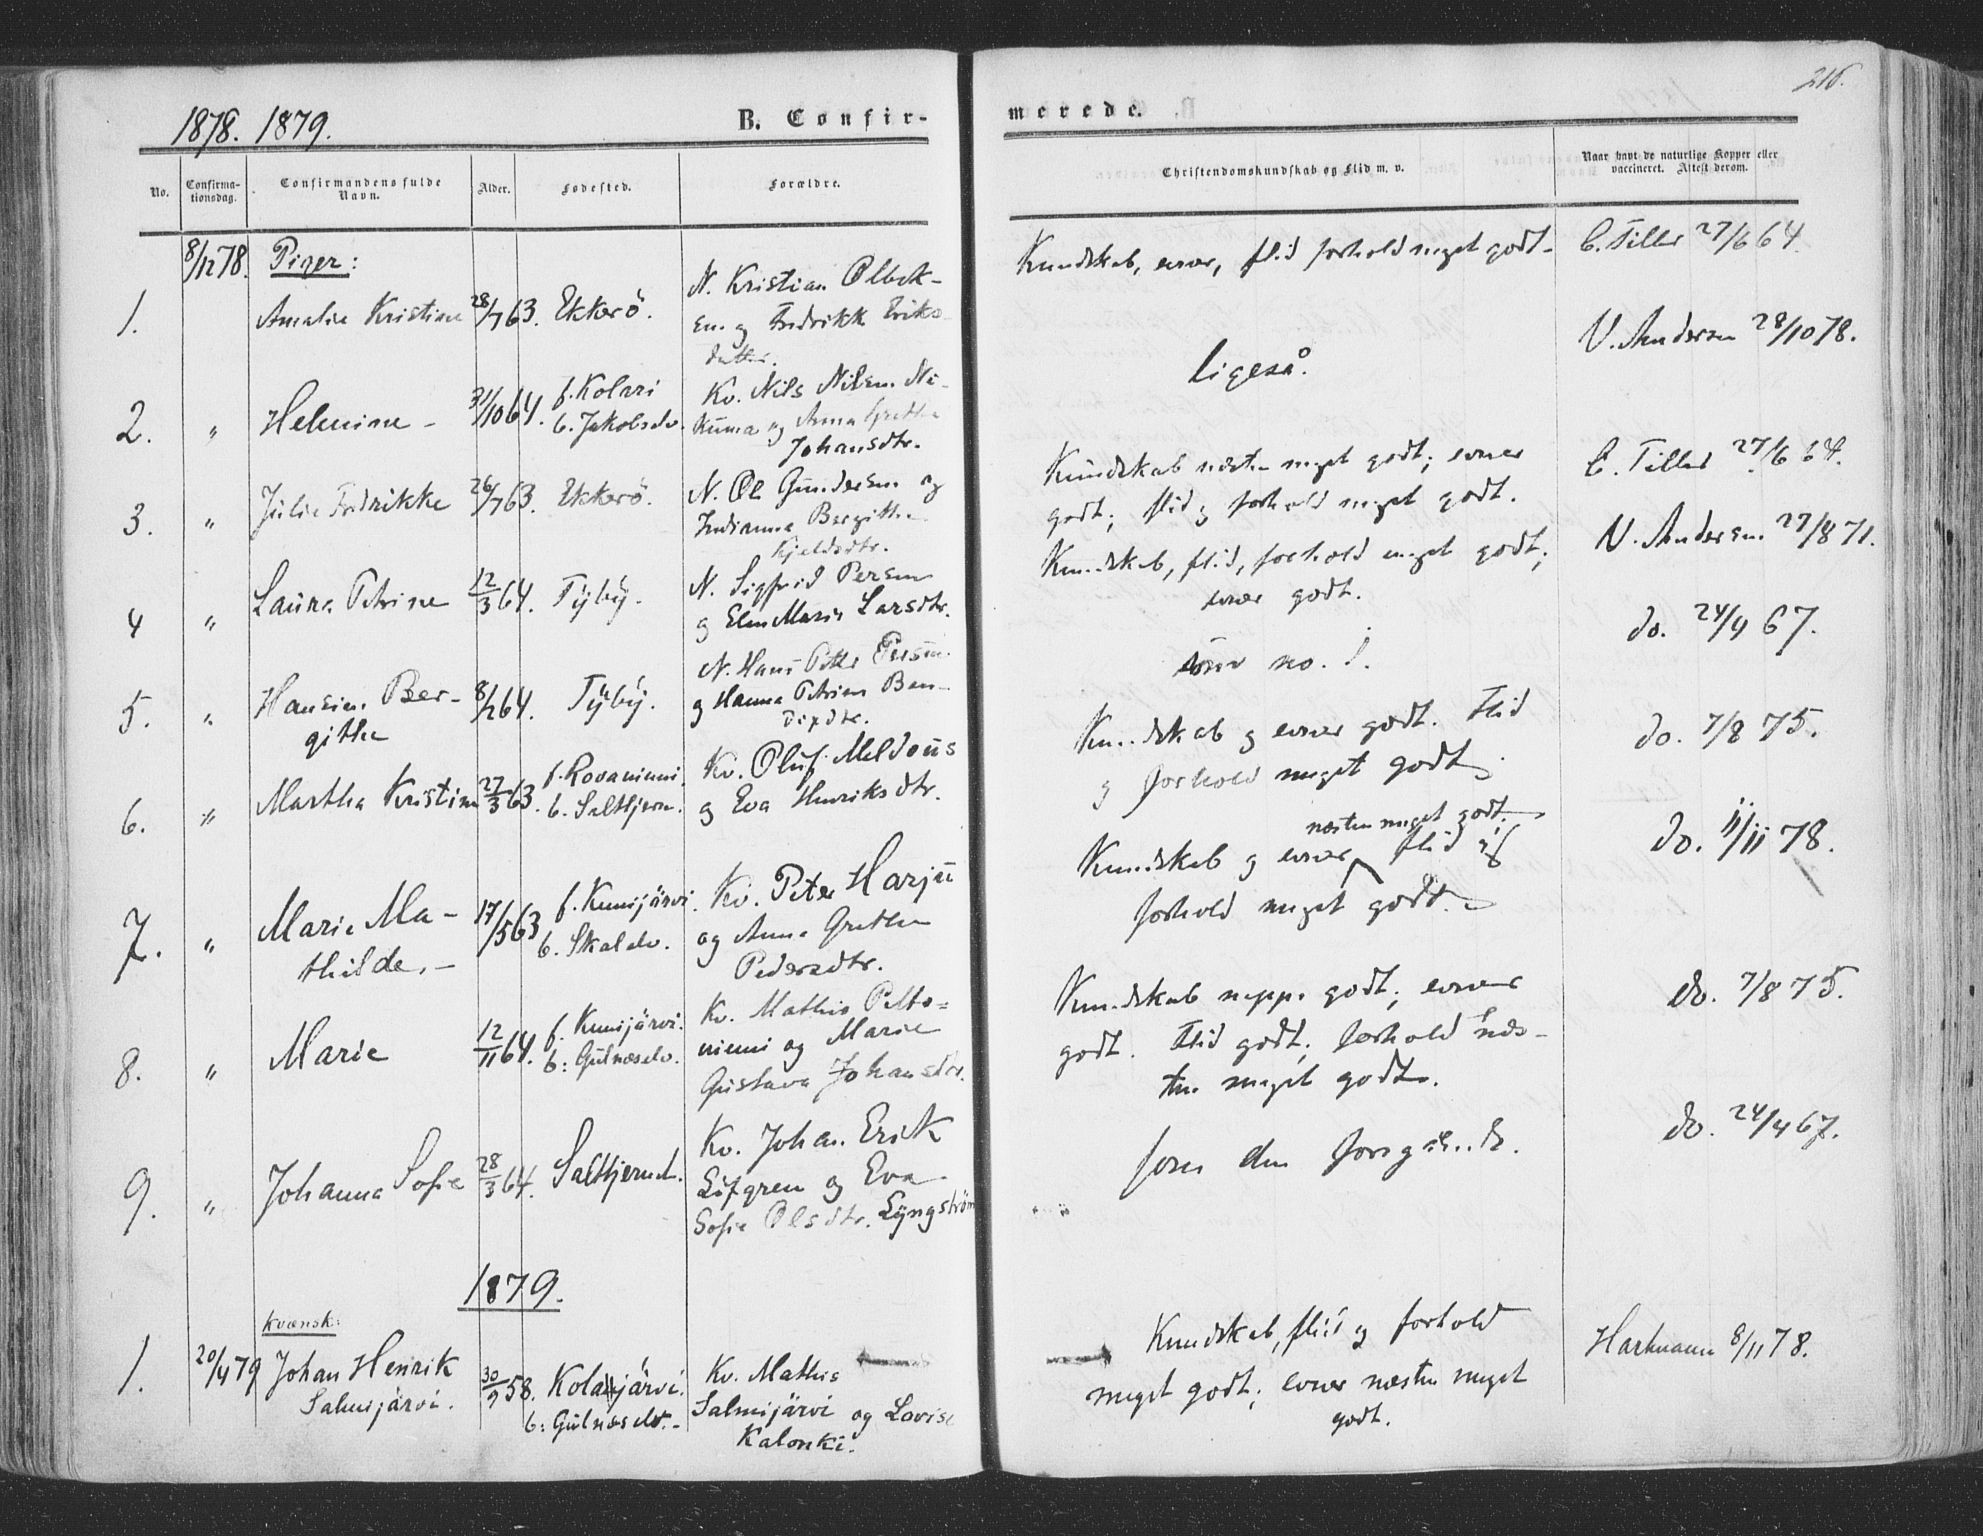 216.
1878. 1879.
B. Confir-
merede.
No.
Confirma-
tionsdag.
Confirmandens fulde
Navn.
Alder.
Fødested.
Forældre.
Christendomskundskab og Flid m. v.
Naar havt de naturlige Kopper eller
vaccineret. Attest derom.
8/12 78. Piger:
1. Amalie Kristine 28/7 63. Ekkerö.
N. Kristian Olbek-
sen og Fredrikk Eriks
datter.
Kundskab, evner, flid forhold meget godt.
C. Tiller 27/6 64.
2. " Helenine 31/10 64. f. Kolari
b. Jakobselv.
Kv. Nils Nilsen Ni-
kuma og Anna Grethe
Johansdtr.
Ligeså.
N. Andersen 28/10 78.
3. " Julie Fredrikke 26/7 63. Ekkerö.
N. Ole Gundersen og
Indianna Bergitha
Kjeldsdtr.
Kundskab næsten meget godt; evner
godt; flid og forhold meget godt.
C. Tiller 27/6 64.
4 " Laura Petrine 12/3 64. Tÿbÿ.
N. Sigfrid Persen
og Elen Marie Larsdtr.
Kundskab, flid, forhold meget godt;
evner godt.
N. Andersen 27/8 71.
5. " Hansine Ber-
githe
8/12 64. Tÿbÿ.
N. Hans Petter Persen
og Hanna Petrine Ben-
dixdtr.
som no. 1.
do. 24/4 67.
6. " Martha Kristine 27/3 63. f. Rovaniemi
b. Saltfjern.
Kv. Oluf Meldous
og Eva Henriksdtr.
Kundskab og evner godt. Flid
og forhold meget godt.
do. 7/8 75.
7. " Marie Ma-
thilde.
17/5 63 f. Kemijärvi
b. Skalelv.
Kv. Peter Harju
og Anna Grethe
Pedersdtr.
næsten meget godt.
Kundskab og evner flid og
forhold meget godt.
do. 11/11 78.
8. " Marie 12/11 64. f. Kemijärvi.
b: Gulneselv.
Kv. Mathis Pelto-
niemi og Marie
Gustava Johansdtr.
Kundskab neppe godt; evner
godt. Flid godt; forhold næs-
ten meget godt.
do. 7/8 75.
9. " Johanna Sofie 28/3 64. Saltfjernet.
Kv. Johan Erik
Löfgren og Eva
Sofie Olsdtr. Lyngström
som den foregående.
do. 24/4 67.
1879.
Kvænsk:
1. 20/4 79 Johan Henrik
Salmijärvi.
30/9 58. Kolarijärvi.
b: Gulneselv.
Kv. Mathis
Salmijärvi og Lovise
Kalonki.
Kundskab, flid og forhold
meget godt; evner næsten meget
godt.
Hartmann 8/11 78.